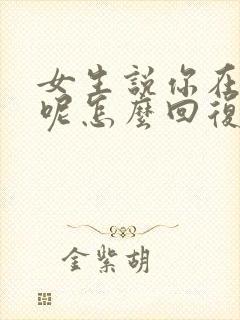 女生説你在
呢怎麼回復
金紫胡